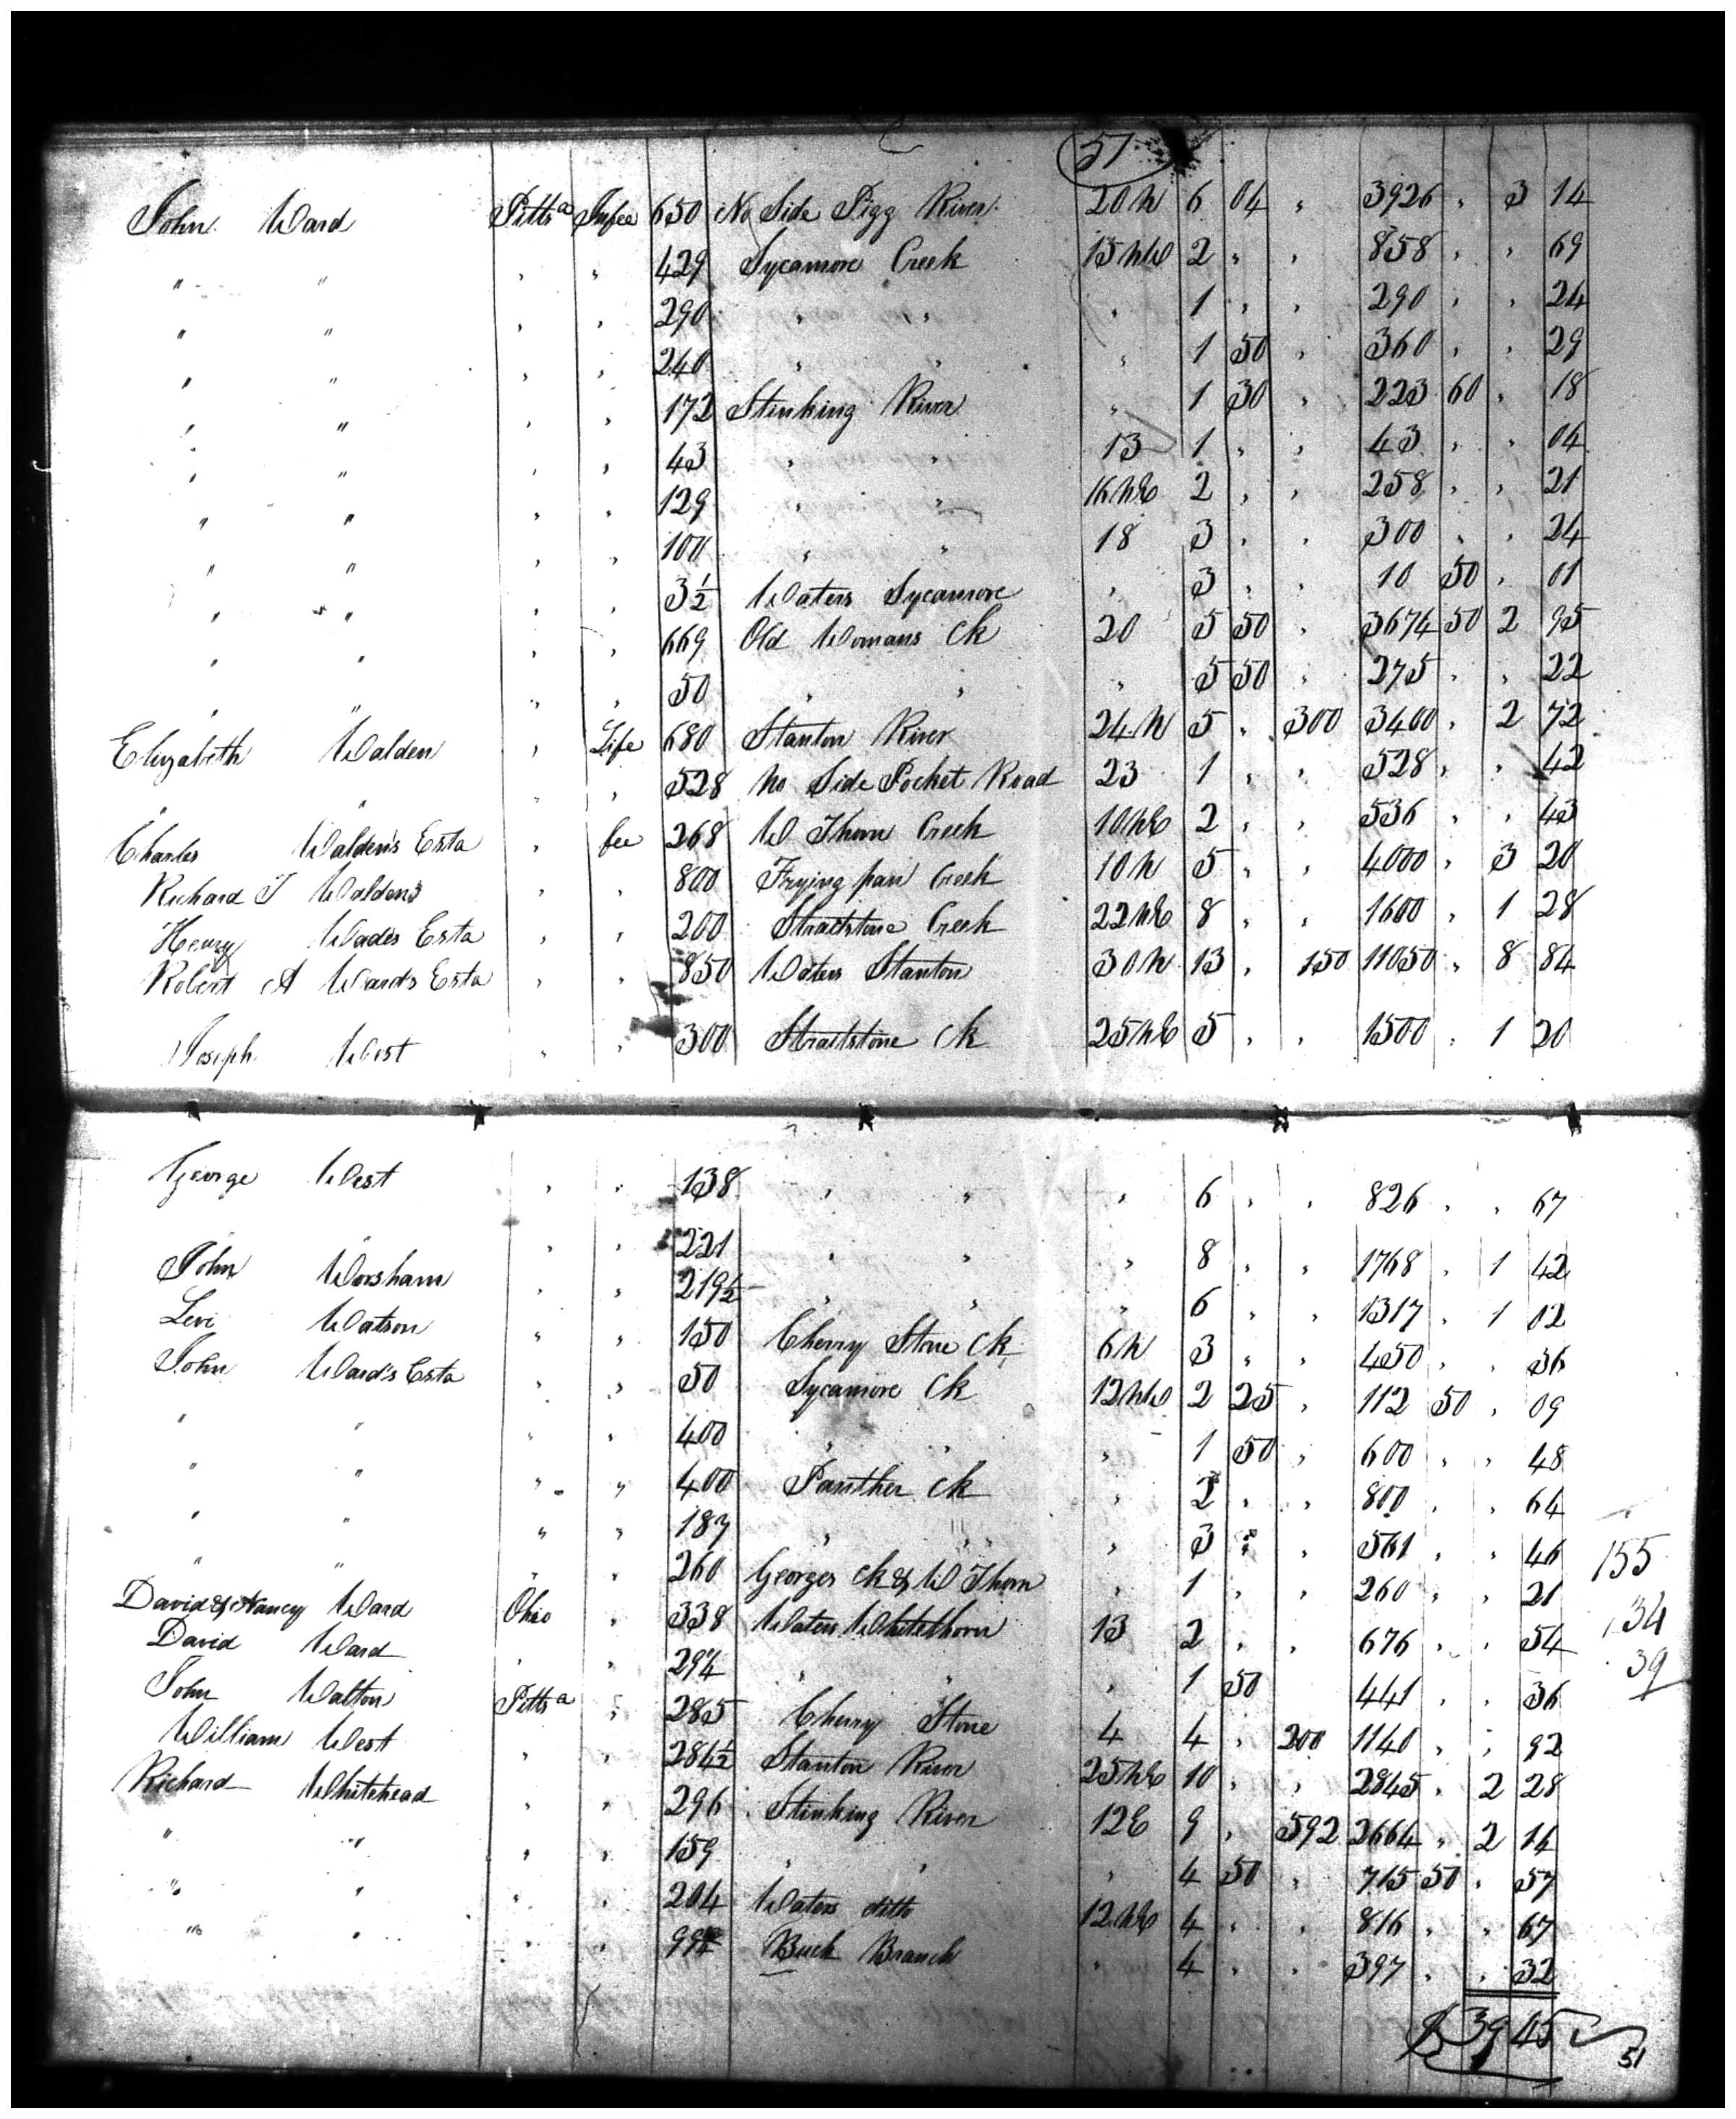 51
John Ward Pittsa Infee 650 No Side Pigg River 20 N 6 04 " 3926 " 3 14
" " " " 429 Sycamore Creek 15 NW 2 " " 858 " " 69
" " " " 290 " " " 1 " " 290 " " 24
" " " " 240 " " " 1 50 " 360 " " 29
" " " " 172 Stinking River " 1 30 " 223 60 " 18
" " " " 43 " " 13 1 " " 43 " " 04
" " " " 129 " " 16 NE 2 " " 258 " " 21
" " " " 100 " " 18 3 " " 300 " " 24
" " " " 3½ Waters Sycamore " 3 " " 10 50 " 01
" " " " 669 Old Womans Ck 20 5 50 " 3674 50 2 95
" " " " 50 " " " 5 50 " 275 " " 22
Elizabeth Walden " Life 680 Stanton River 24 N 5 " 300 3400 " 2 72
" " " " 528 No Side Pocket Road 23 1 " " 528 " " 42
Charles Walden's Esta " fee 268 W Thorn Creek 10 NE 2 " " 536 " " 43
Richard T Walden's " " 800 Frying pan Creek 10 N 5 " " 4000 " 3 20
Henry Wade's Esta " " 200 Straitstone Creek 22 NE 8 " " 1600 " 1 28
Robert A Ward's Esta " " 850 Waters Stanton 30 N 13 " 150 11050 " 8 84
Joseph West " " 300 Straitstone Ck 25 NE 5 " " 1500 " 1 20
George West " " 138 " " " 6 " " 826 " " 67
" " " " 221 " " " 8 " " 1768 " 1 42
John Worsham " " 219½ " " " 6 " " 1317 " 1 02
Levi Watson " " 150 Cherry Stone Ck 6 N 3 " " 450 " " 36
John Ward's Esta " " 50 Sycamore Ck 12 NW 2 25 " 112 50 " 09
" " " " 400 " " " 1 50 " 600 " " 48
" " " " 400 Panther Ck " 2 " " 800 " " 64
" " " " 187 " " " 3 " " 561 " " 46
" " " " 260 Georges Ck & W Thorn " 1 " " 260 " " 21
155
David & Nancy Ward Ohio " 338 Waters Whitethorn 13 2 " " 676 " " 54
134
David Ward " " 294 " " " 1 50 441 " " 36
39
John Walton Pittsa " 285 Cherry Stone 4 4 " 200 1140 " " 92
William West " " 284½ Stanton River 25 NE 10 " " 2845 " 2 28
Richard Whitehead " " 296 Stinking River 12 E 9 " 592 2664 " 2 14
" " " " 159 " " " 4 50 " 715 50 " 57
" " " " 204 Waters ditto 12 NE 4 " " 816 " " 67
" " " " Buck Branch " 4 " " 397 " " 32
$39 45
51